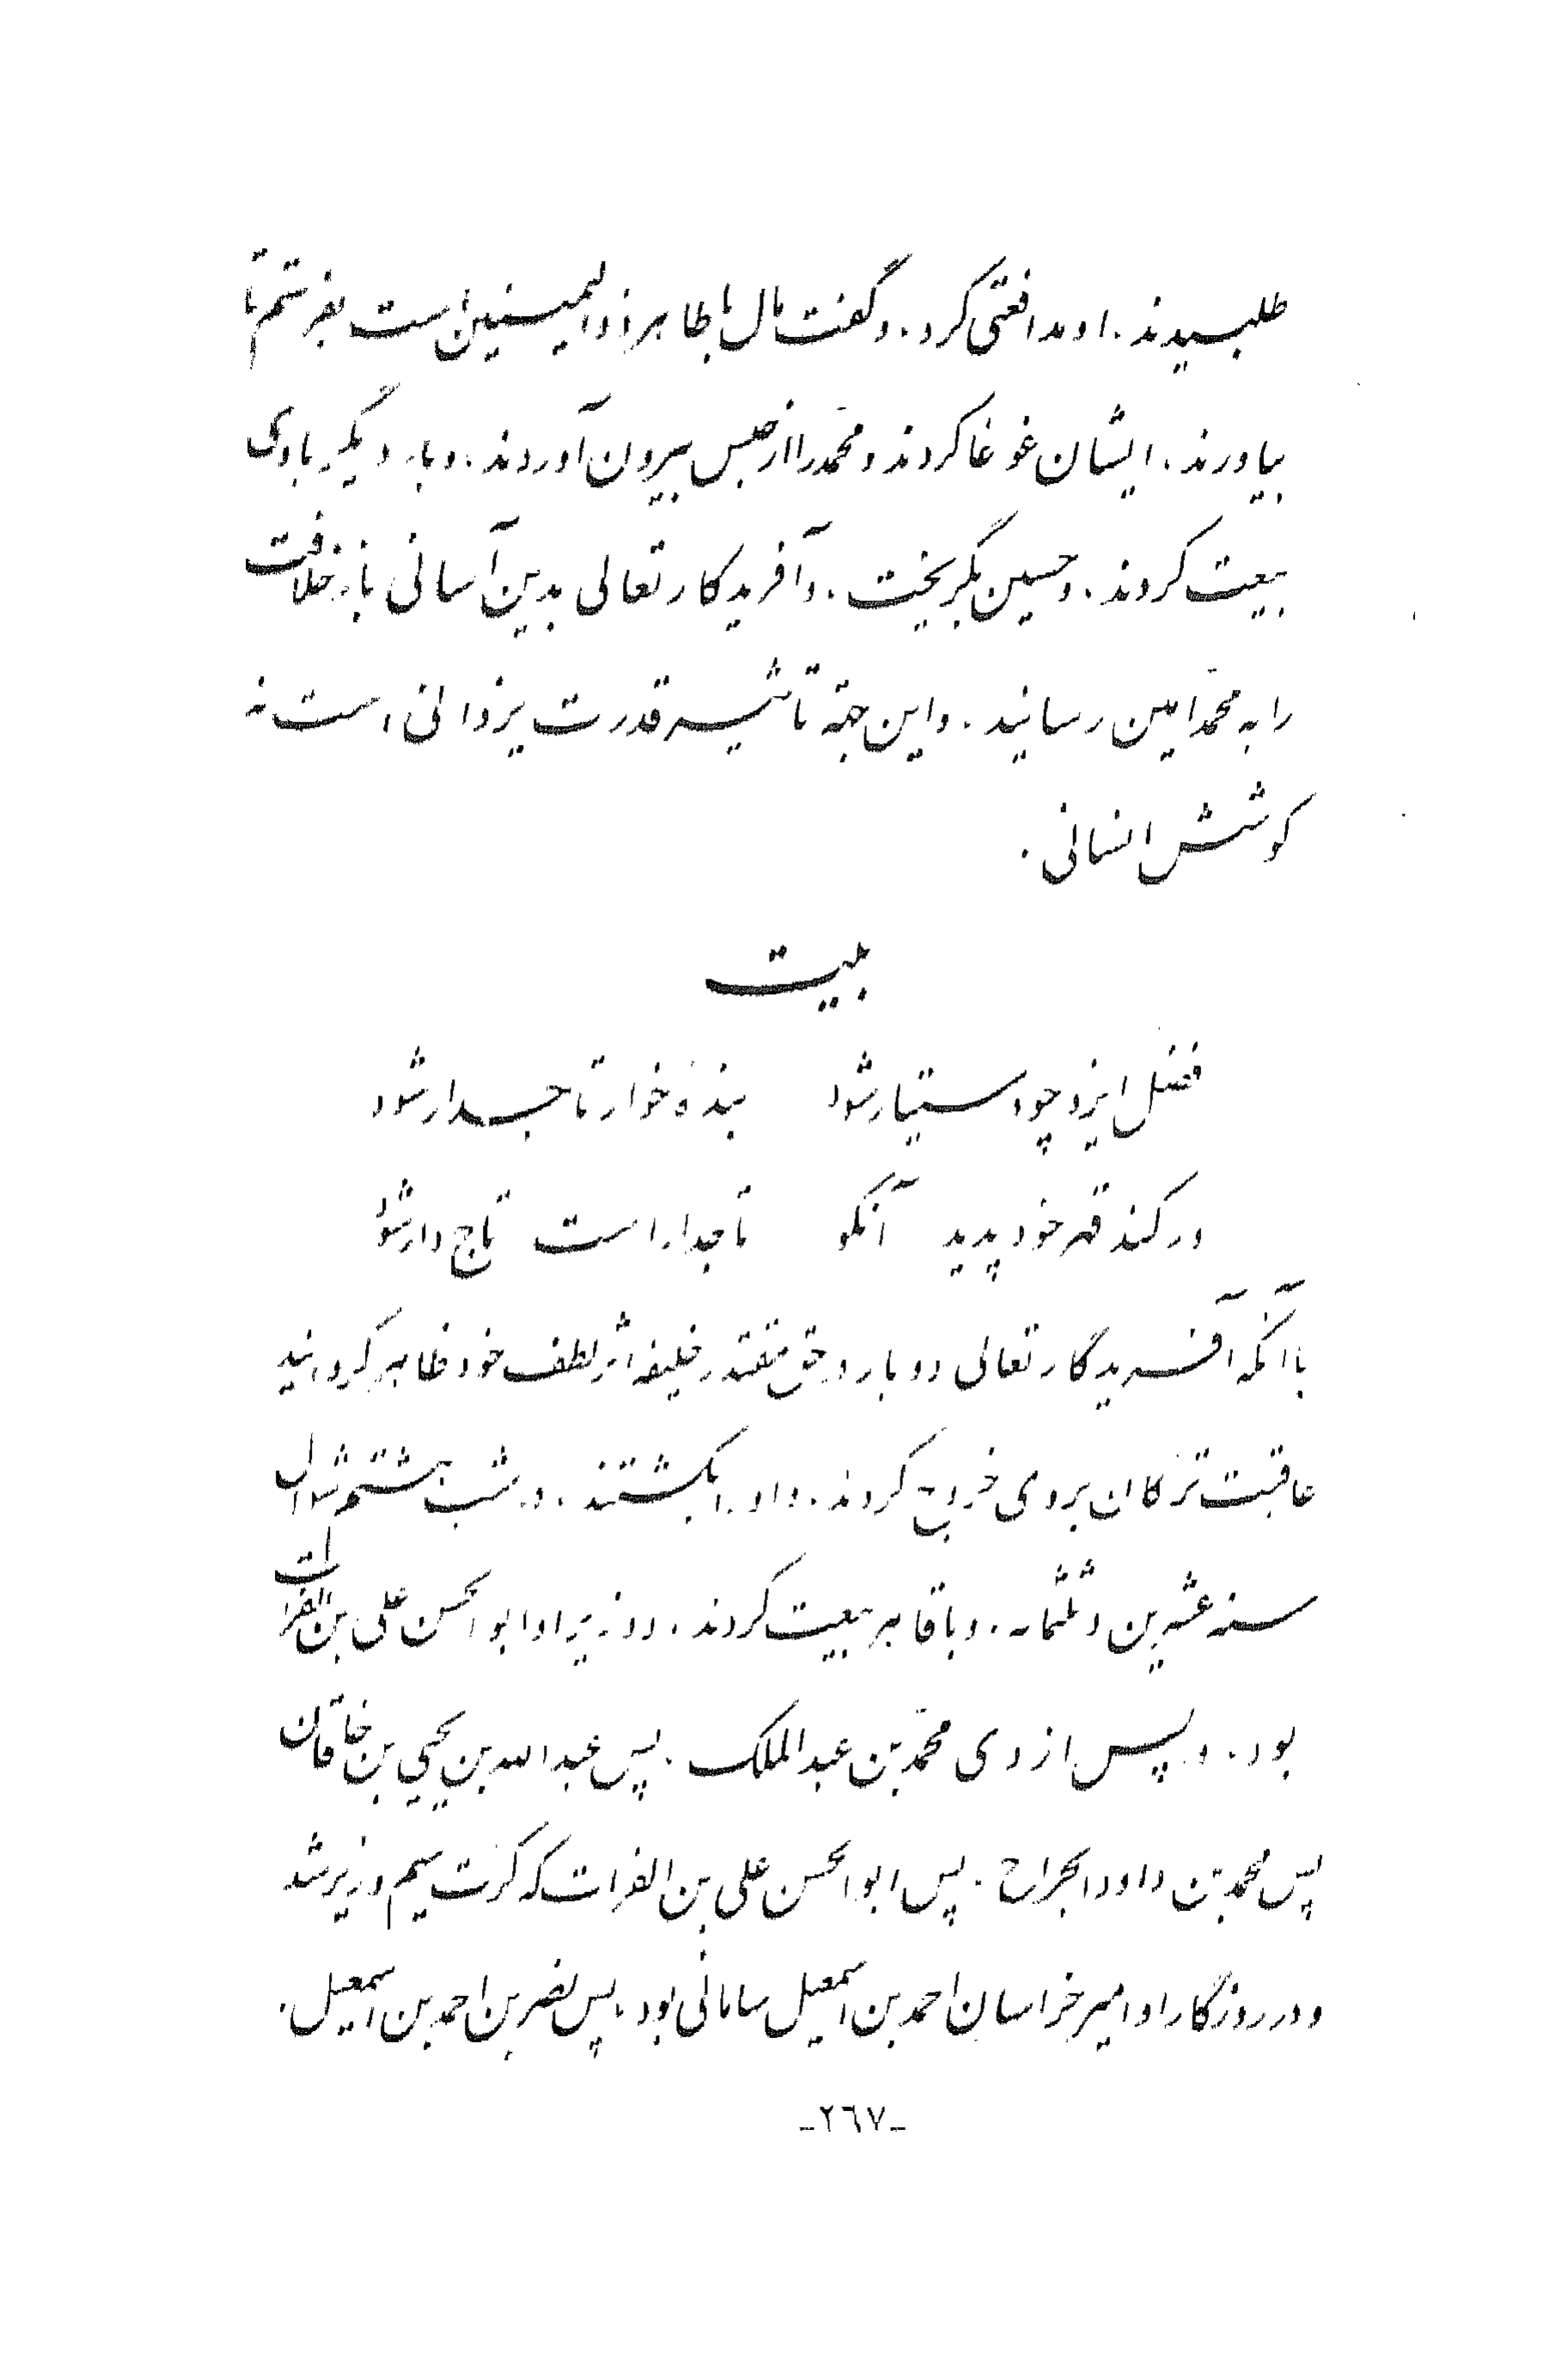 طلبیدند. او مدافعتی کرد. و گفت مال با طاهر ذوالیمینین است بفرستم تا
بیاورند. ایشان غوغا کردند و محمّد را از حبس بیرون آوردند. و بار دیگر با وی
بیعت کردند. و حسین بگریخت. و آفریدکار تعالی بدین آسانی باز خلافت
را به محمّد امین رسانید. و این جمله تاثیر قدرت یزدانی است نه
کوشش انسانی.
بیت
فضل ایزد چو دستیار شود بنده خوار تاجدار شود
ور کند قهر خود پدید آنکو تاجدار است تاج دار شود
با آنکه آفریدگار تعالی دو بار در حق مقتدر خلیفه اثر لطف خود ظاهر کردانید
عاقبت ترکان بر وی خروج کردند. و او را بکشتند. در شب هشتم شوال
سنه عشرین و ثلثمائه. و با قاهر بیعت کردند. و وزیر او ابوالحسن علی بن الفرات
بود. و پس از وی محمّد بن عبدالملک. پس عبدالله بن یحیی بن خاقان
پس محمّد بن داود الجراح. پس ابوالحسن علی بن الفرات که کرّت سیم وزیر شد
و در روزگار او امیر خراسان احمد بن اسمعیل سامانی بود. پس نصر بن احمد بن اسمعیل.
-٢٦٧-